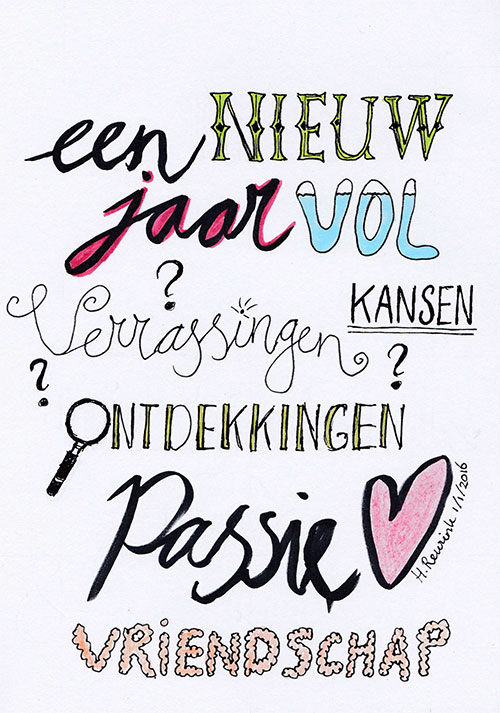 een NIEUW
jaar VOL
?
Verrassingen KANSEN
? ?
ONTDEKKINGEN
Passie
H. Reurink 1/1/2016
VRIENDSCHAP